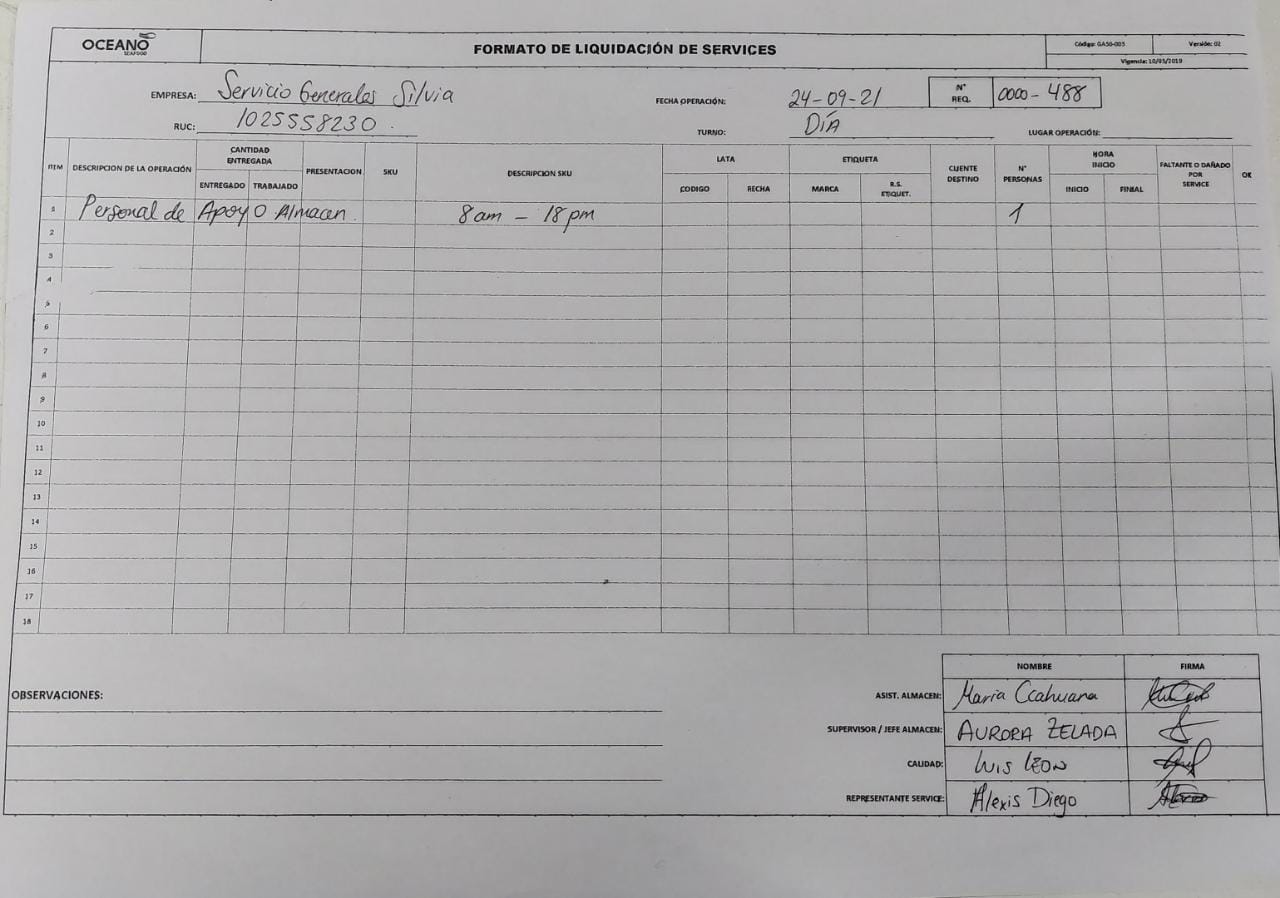 OCEANO
SEAFOOD
FORMATO DE LIQUIDACIÓN DE SERVICES
Código: GA50-003 Versión: 02
Vigencia: 10/03/2019
EMPRESA: Servicio Generales Silvia
FECHA OPERACIÓN: 24-09-21
N° REQ. 0000-488
RUC: 1025558230.
TURNO: DÍA
LUGAR OPERACIÓN:
ITEM DESCRIPCION DE LA OPERACIÓN CANTIDAD ENTREGADA PRESENTACION SKU DESCRIPCION SKU LATA ETIQUETA CLIENTE DESTINO N° PERSONAS HORA INICIO FALTANTE O DAÑADO POR SERVICE OK
ENTREGADO TRABAJADO CODIGO FECHA MARCA R.S. ETIQUET. INICIO FINIAL
1 Personal de Apoyo Almacen. 8am - 18pm 1
2
3
4
5
6
7
8
9
10
11
12
13
14
15
16
17
18
NOMBRE FIRMA
OBSERVACIONES:
ASIST. ALMACEN: Maria Ccahuana
SUPERVISOR / JEFE ALMACEN: AURORA ZELADA
CALIDAD: LUIS LEON
REPRESENTANTE SERVICE: Alexis Diego